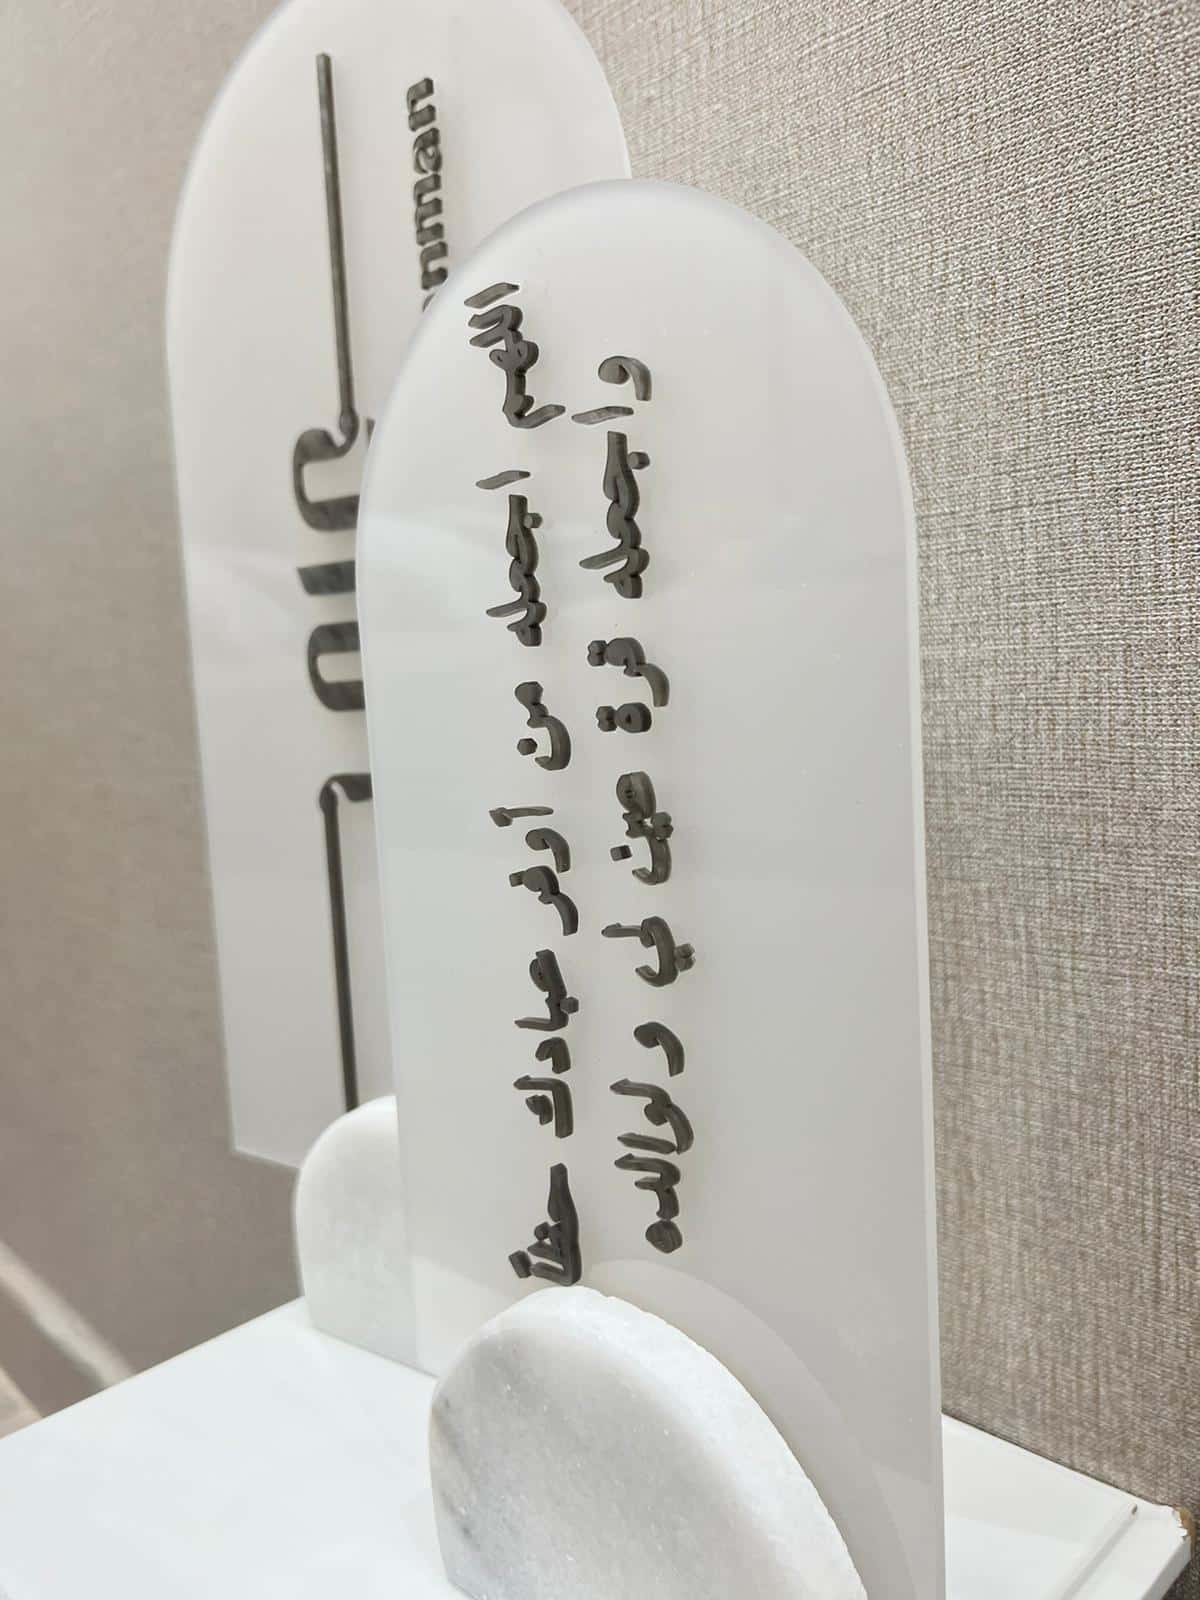 اللهم اجعله من أوفر عبادك حظاً
واجعله قرة عين لي ولوالده